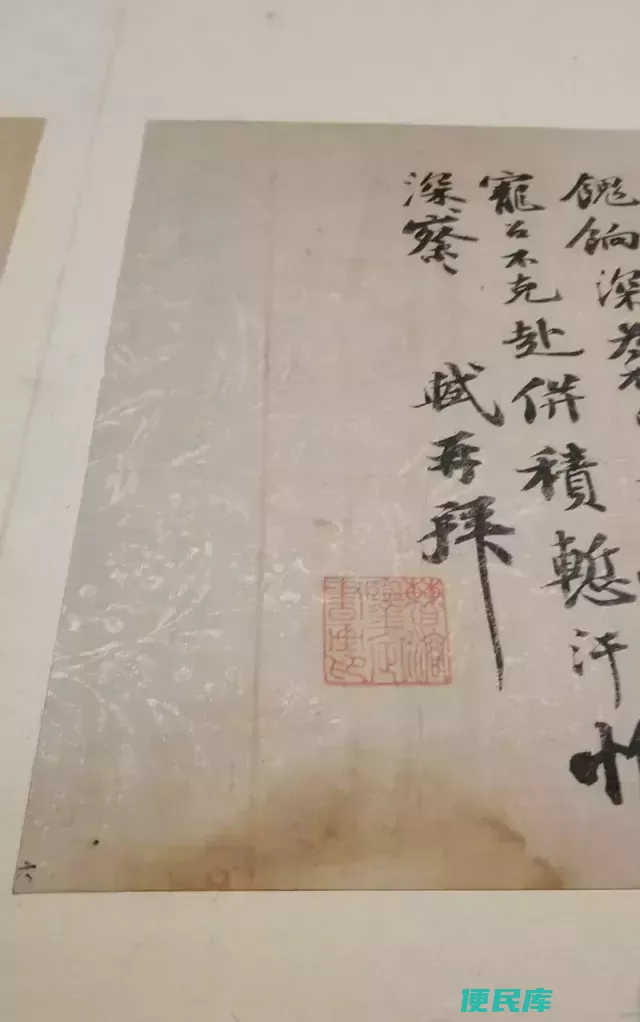 餽餉深
寵召不克赴併積慙汗惟
深察
軾再拜
便民库